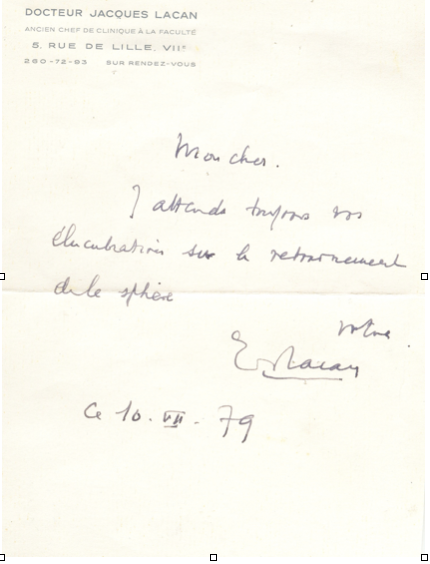 DOCTEUR JACQUES LACAN
ANCIEN CHEF DE CLINIQUE À LA FACULTÉ
5, RUE DE LILLE, VIIᵉ
260-72-93 SUR RENDEZ-VOUS
Mon cher.
J'attends toujours vos
élucubrations sur le retournement
de la sphère
votre.
Lacan
Ce 10. VII. 79